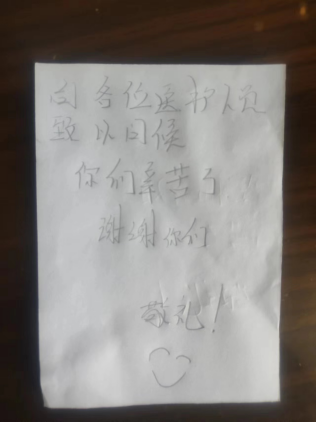 向各位医护人员
致以问候
你们辛苦了
谢谢你们
敬礼!